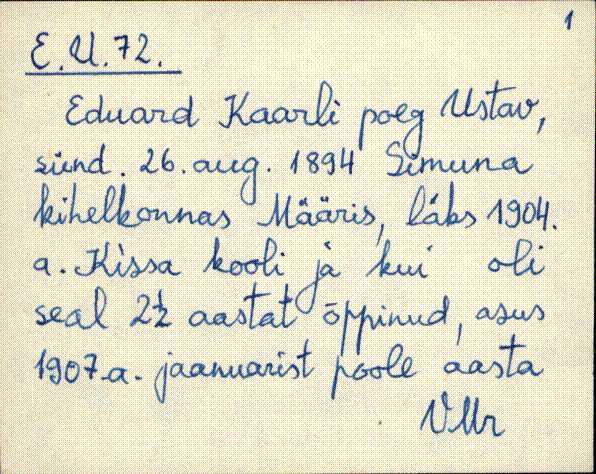 1
E.U.72.
Eduard Kaarli poeg Ustav,
sünd. 26. aug. 1894 Simuna
kihelkonnas Määris, läks 1904.
a. Kissa kooli ja kui oli
seal 2½ aastat õppinud, asus
1907.a. jaanuarist poole aasta
VMr